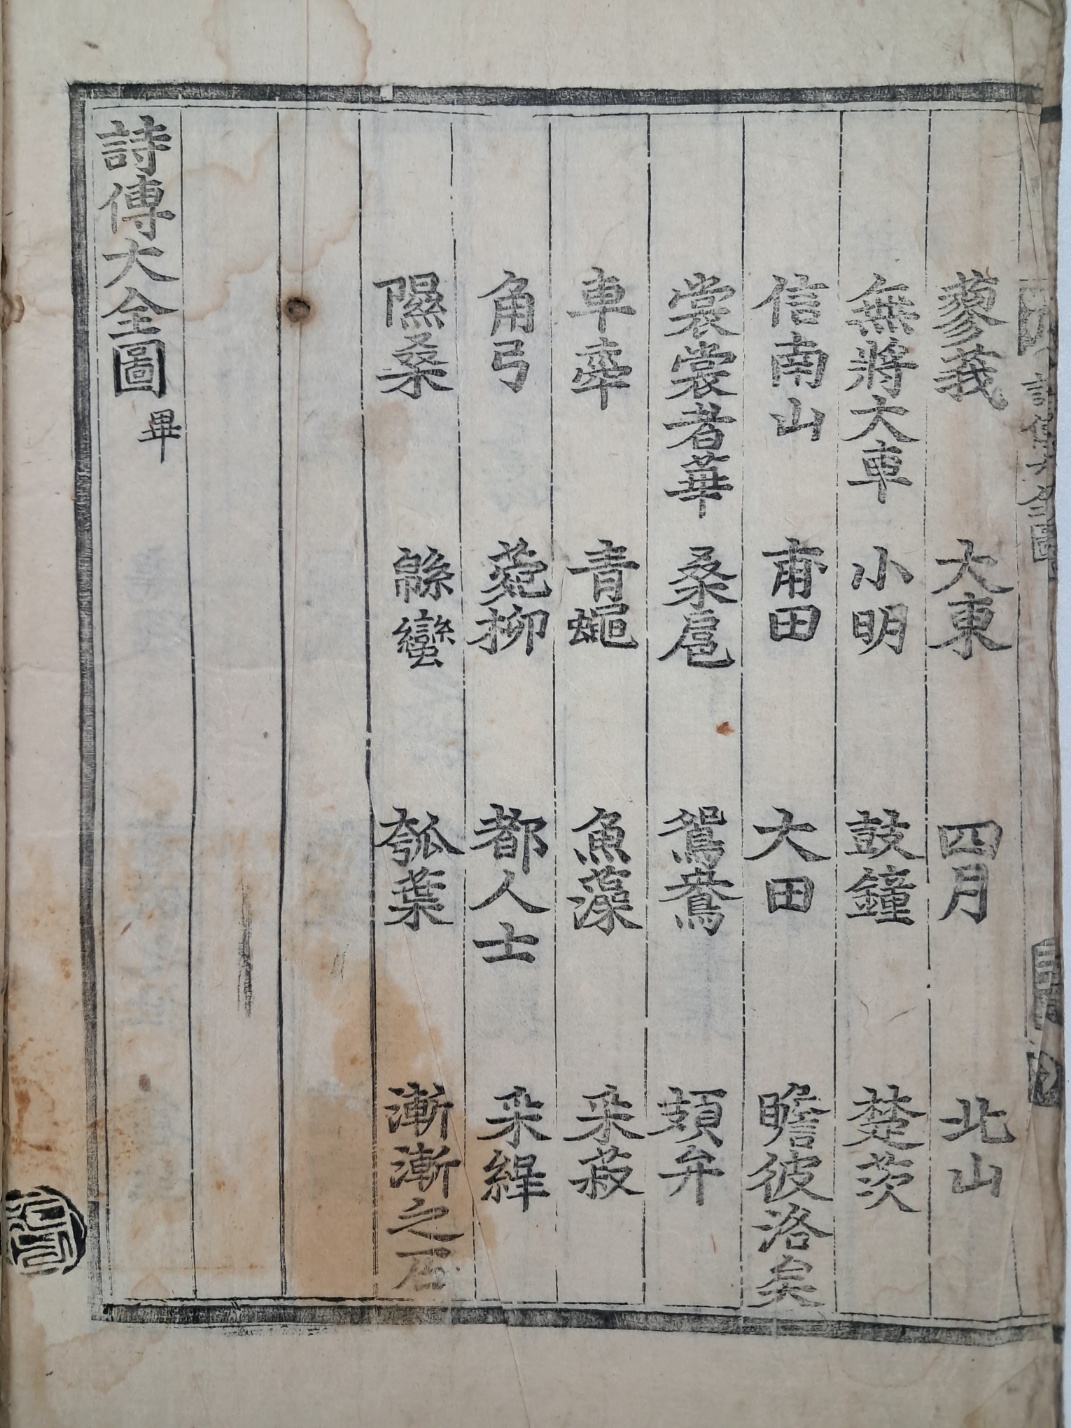 蓼莪 大東 四月 北山
無將大車 小明 鼓鐘 楚茨
信南山 甫田 大田 瞻彼洛矣
裳裳者華 桑扈 鴛鴦 頍弁
車舝 青蠅 魚藻 采菽
角弓 菀柳 都人士 采綠
隰桑 緜蠻 瓠葉 漸漸之石
詩傳大全圖 畢